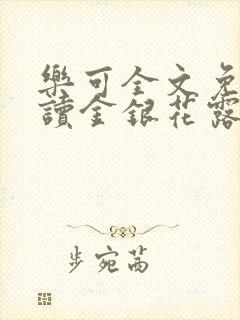 樂可全文免
讀金銀花露
步宛茜